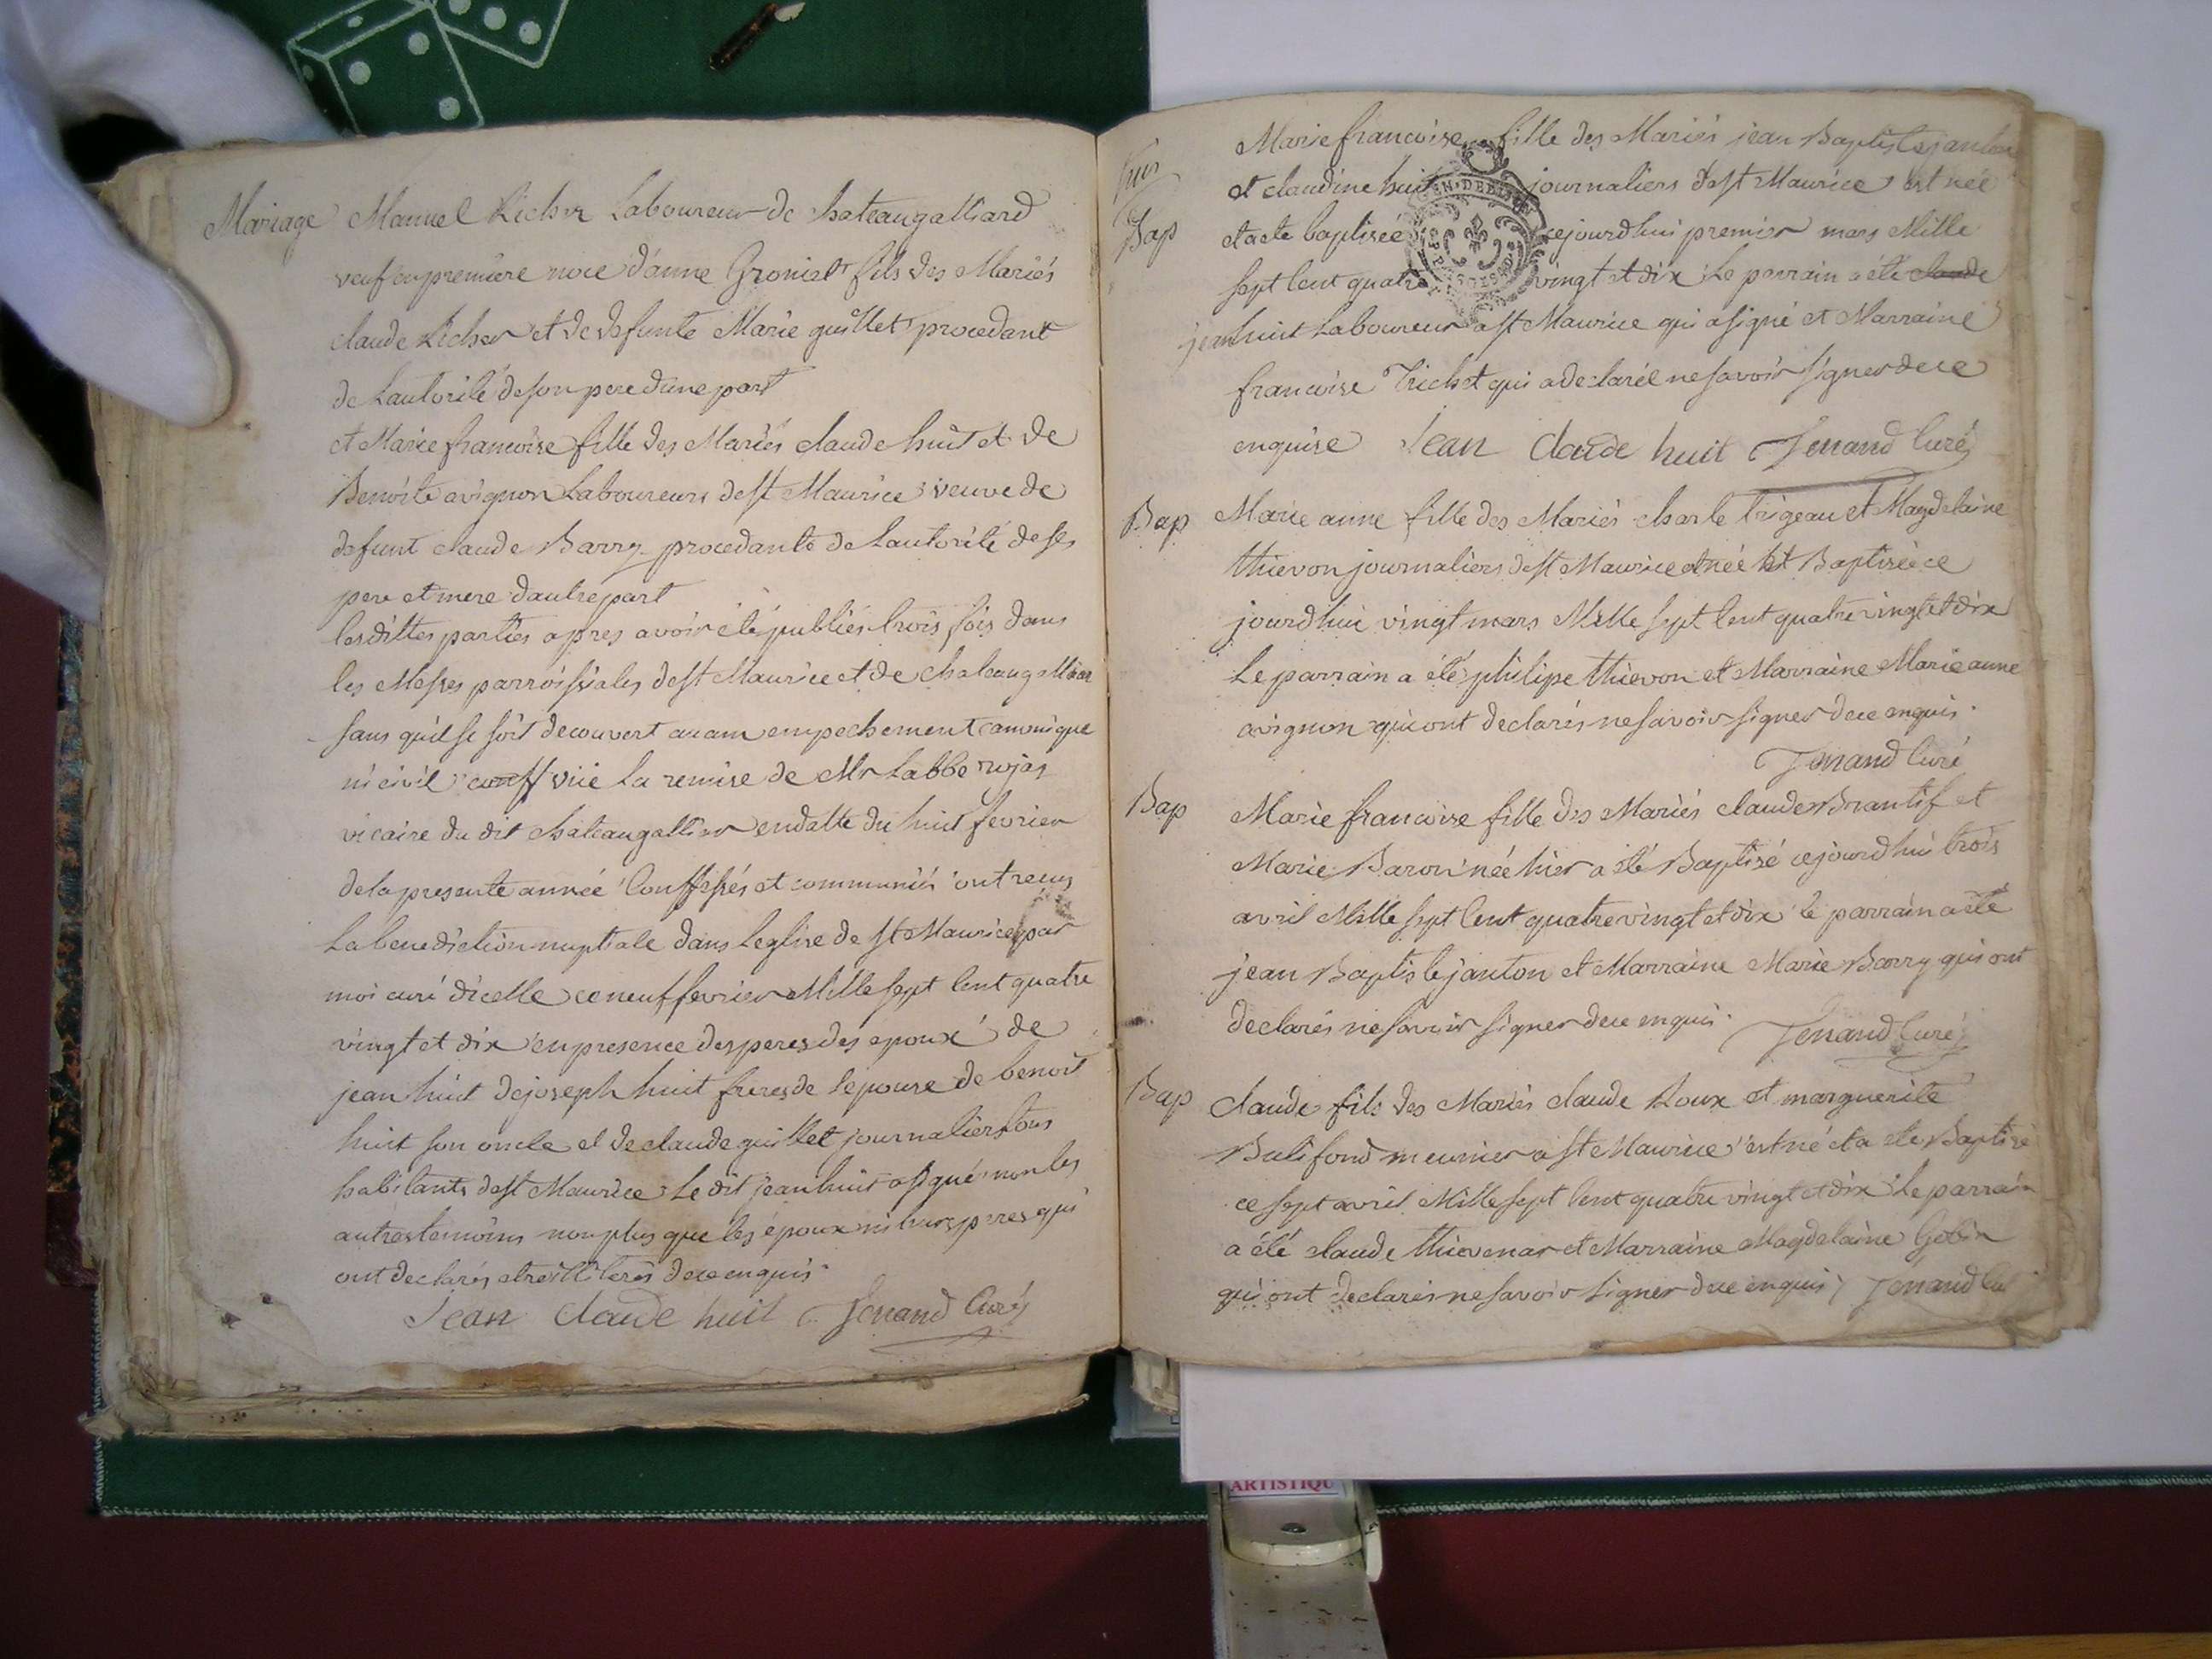 Mariage Manuel Richer Laboureur de chateaugalliard
veuf en premiere noce d'anne Groniat fils des Mariés
claude Richer et de defunte Marie guillet procedant
de Lautorité de son pere d'une part
et Marie francoise fille des Mariés claude huit et de
Benoite avignon Laboureurs de st Maurice veuve de
defunt claude Barry procedante de Lautorité de ses
pere et mere d'autre part
lesdittes parties apres avoir été publiés trois fois dans
les Messes parroissiales de st Maurice et de chateaugalliar
sans quil se soit decouvert aucun empechement canonique
ni civil vüe la remise de Mr Labbé rojas
vicaire du dit chateaugalliar en datte du huit fevrier
de la presente année Confessés et communiés ont recus
La benediction nuptiale dans Leglise de st Maurice par
moi curé dicelle ce neuf fevrier Mille sept Cent quatre
vingt et dix en presence des peres des epoux de
jean huit de joseph huit freres de l'epouse de benoit
huit son oncle et de claude guillet journaliers tous
habitants de st Maurice Le dit jean huit a signé non les
autres temoins non plus que les époux ni leurs peres qui
ont declarés etre illiterés de ce enquis
Jean Claude huit Jenand Curé
Marie francoise fille des Mariés jean Baptiste janton
et claudine huit journaliers de st Maurice est née
Bap et a ete baptisée cejourdhui premier mars Mille
sept Cent quatre vingt et dix Le parrain a été claude
jean huit Laboureur a st Maurice qui a signé et Marraine
francoise Trichet qui a declarée ne savoir signer de ce
enquise Jean Claude huit Jenand Curé
Bap Marie anne fille des Mariés charle Trigeau et Magdelaine
thievon journaliers de st Maurice et née et Baptisée ce
jourdhui vingt mars Mille sept Cent quatre vingt et dix
Le parrain a été philipe thievon et Marraine Marie anne
avignon qui ont declarés ne savoir signer de ce enquis
Jenand Curé
Bap Marie francoise fille des Mariés claude Brantif et
Marie Baron née hier a été Baptisé cejourdhui trois
avril Mille sept Cent quatre vingt et dix le parrain a été
jean Baptiste janton et Marraine Marie Barry qui ont
declarés ne savoir signer de ce enquis Jenand Curé
Bap claude fils des Mariés claude Roux et marguerite
Bulifond meunier a st Maurice est né et a ete Baptisé
ce sept avril Mille sept Cent quatre vingt et dix Le parrain
a été claude thievenar et Marraine Magdelaine Gobin
qui ont declarés ne savoir signer de ce enquis Jenand Cu
ARTISTIQU